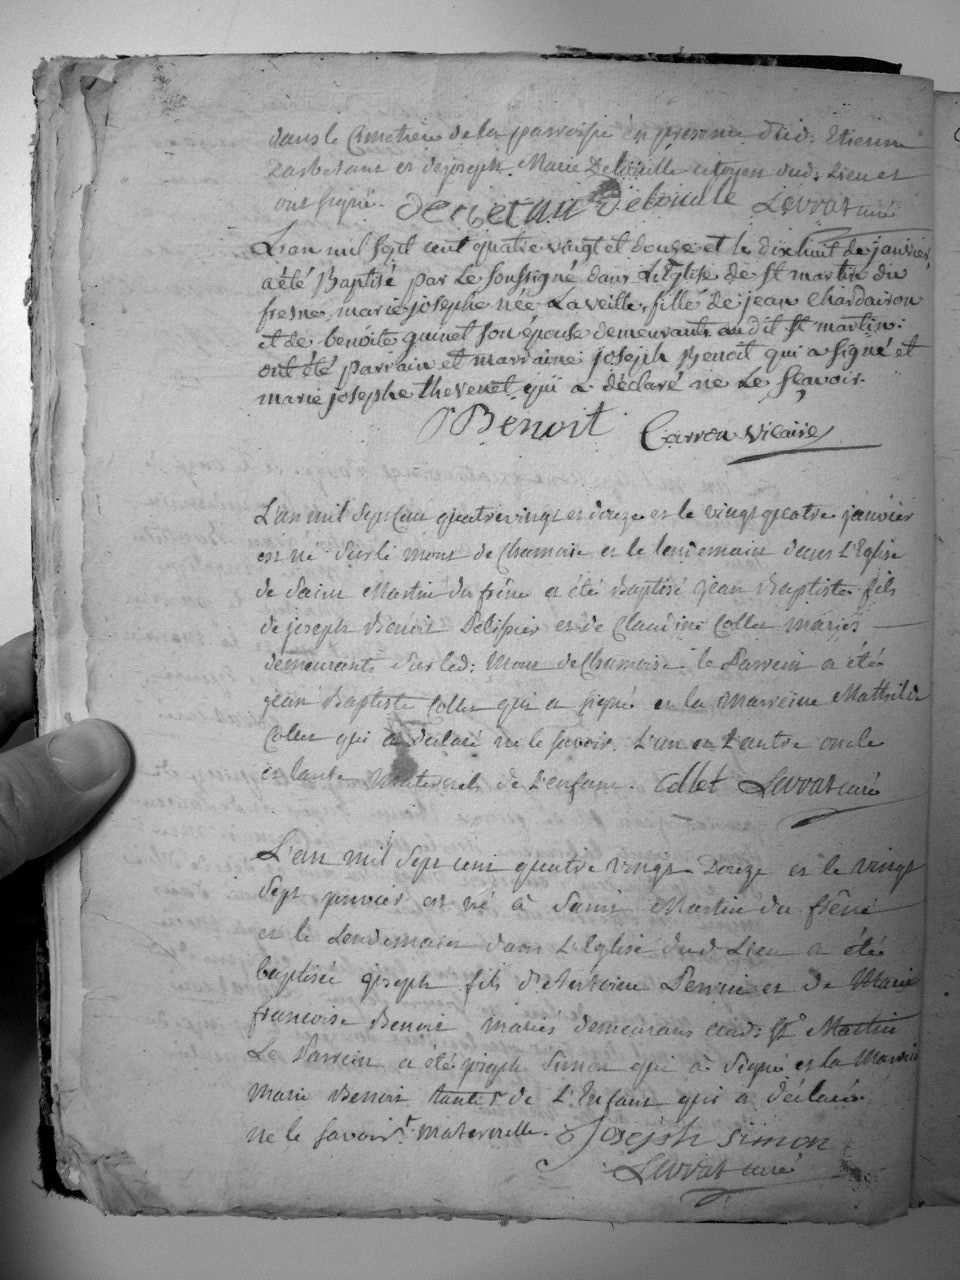 dans le Cimetiere de la parroisse en presence dud: Etienne
et de joseph Marie Delécuille citoyen dud: Lieu et
ont signé. Levrat curé
L'an mil sept cent quatre vingt et douze et le dixhuit de janvier,
a été Baptisé par Le soussigné dans L'Eglise de st martin du
fresne, marie josephe née La veille, fille de jean Chardairon
et de benoite guinet son épouse demeurants au dit st martin:
ont été parrain et marraine: joseph Benoit qui a signé et
marie josephe thevenet qui a déclaré ne Le sçavoir.
Benoit Carron vicaire
L'an mil sept cent quatrevingt et douze et le vingt quatre janvier
est né sur le mont de Chamoise et le lendemain dans L'Eglise
de Saint Martin du frêne a été Baptisé jean Baptiste fils
de joseph Benoit Pelissier et de Claudine Collet mariés
demeurants sur led: Mont de Chamoise le Parrein a été
jean Baptiste Collet qui a signé et la Marreine Mathilde
Collet qui a déclaré ne le savoir. L'un et L'autre oncle
et tante maternels de L'enfant. Collet Levrat curé
L'an mil sept cent quatre vingt Douze et le vingt
sept janvier est né à Saint Martin du frêne
et le Lendemain dans L'Eglise dud: Lieu a été
baptisée joseph fils d'Antoine Perrin et de Marie
francoise Benoit mariés demeurans aud: St Martin
Le Parrein a été joseph Simon qui a signé et la Marreine
Marie Benoit tante de L'Enfant qui a déclaré
ne le savoir. maternelle. Joseph simon
Levrat curé